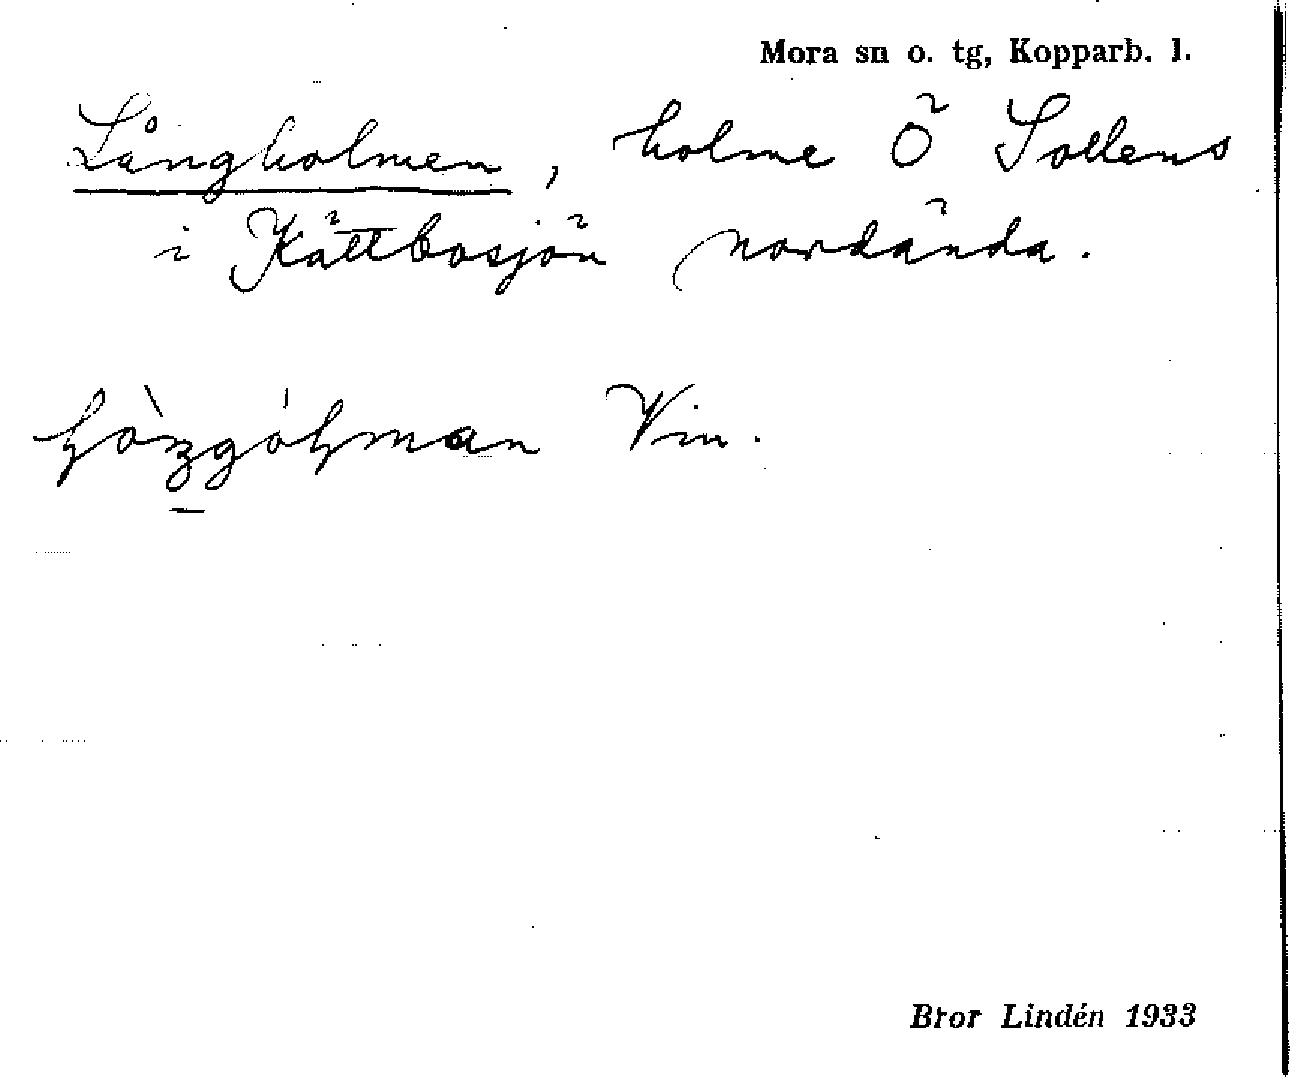 Mora sn o. tg, Kopparb. l.
Långholmen, holme Ö Sollens
i Kättbosjön nordända.
Vim.
Bror Lindén 1933